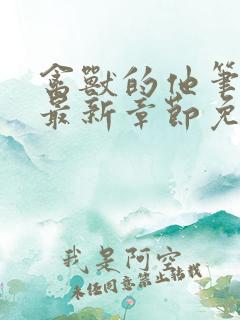 禽獸的他筆
最新章節免
我是阿空
未經同意禁止轉載